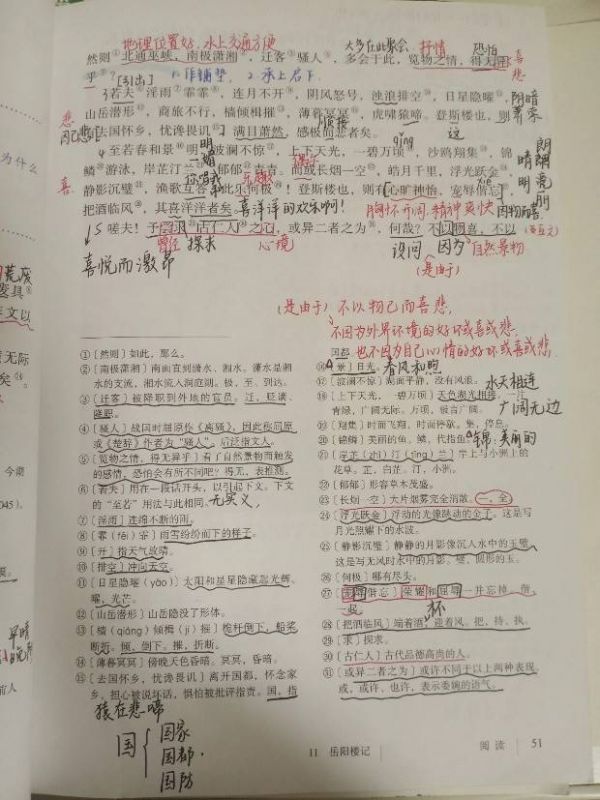 地理位置好,水上交通方便
大多在此聚会 抒情 恐怕
然则①北通巫峡,南极潇湘②,迁客③骚人④,多会于此,览物之情,得无异
乎⑤?
[引出] 1.作铺垫 2.承上启下
喜
悲
若夫⑥淫雨⑦霏霏⑧,连月不开⑨,阴风怒号,浊浪排空⑩,日星隐曜⑪,
阴暗
山岳潜形⑫,商旅不行,樯倾楫摧⑬,薄暮冥冥⑭,虎啸猿啼。登斯楼也,则
有去国怀乡,忧谗畏讥⑮,满目萧然,感极而悲者矣。
这
至若春和景⑯明,波澜不惊⑰,上下天光,一碧万顷⑱,沙鸥翔集⑲,锦
鳞⑳游泳,岸芷汀兰㉑,郁郁㉒青青。而或长烟一空㉓,皓月千里,浮光跃金㉔,
静影沉璧㉕,渔歌互答,此乐何极㉖!登斯楼也,则有心旷神怡,宠辱偕忘㉗,
把酒临风㉘,其喜洋洋者矣。
喜洋洋的欢乐啊!
胸怀开阔,精神爽快
因物而喜
嗟夫!予尝求㉙古仁人㉚之心,或异二者之为㉛,何哉?不以物喜,不以
曾经 探求 心境
设问 因为 自然景物
(是由于)
喜悦而激昂
(是由于)不以物己而喜悲,
不因为外界环境的好坏或喜或悲,
也不因为自己心情的好坏或喜或悲.
①〔然则〕如此,那么。
②〔南极潇湘〕南面直到潇水、湘水。潇水是湘
水的支流,湘水流入洞庭湖。极,至、到达。
③〔迁客〕被降职到外地的官员。迁,贬谪、
降职。
④〔骚人〕战国时屈原作《离骚》,因此称屈原
或《楚辞》作者为“骚人”。后泛指文人。
⑤〔览物之情,得无异乎〕看了自然景物而触发
的感情,恐怕会有所不同吧?得无,表推测。
⑥〔若夫〕用在一段话开头,以引起下文。下文
的“至若”用法与此相同。
无实义,
⑦〔淫雨〕连绵不断的雨。
⑧〔霏(fēi)霏〕雨雪纷纷而下的样子。
⑨〔开〕指天气放晴。
⑩〔排空〕冲向天空。
⑪〔日星隐曜(yào)〕太阳和星星隐藏起光辉。
曜,光芒。
⑫〔山岳潜形〕山岳隐没了形体。
⑬〔樯(qiáng)倾楫(jí)摧〕桅杆倒下,船桨
断折。倾,倒下。摧,折断。
⑭〔薄暮冥冥〕傍晚天色昏暗。冥冥,昏暗。
⑮〔去国怀乡,忧谗畏讥〕离开国都,怀念家
乡,担心被说坏话,惧怕被批评指责。国,指
国都。
⑯〔景〕日光。
春风和煦
⑰〔波澜不惊〕湖面平静,没有风浪。
水天相连
⑱〔上下天光,一碧万顷〕天色湖光相接,一片
青绿,广阔无际。万顷,极言广阔。
广阔无边
⑲〔翔集〕时而飞翔,时而停歇。集,停息。
⑳〔锦鳞〕美丽的鱼。鳞,代指鱼。
锦:美丽的
㉑〔岸芷(zhǐ)汀(tīng)兰〕岸上与小洲上的
花草。芷,白芷。汀,小洲。
㉒〔郁郁〕形容草木茂盛。
㉓〔长烟一空〕大片烟雾完全消散。
一,全
㉔〔浮光跃金〕浮动的光像跳动的金子。这是写
月光照耀下的水波。
㉕〔静影沉璧〕静静的月影像沉入水中的玉璧。
这是写无风时水中的月影。璧,圆形的玉。
㉖〔何极〕哪有尽头。
㉗〔宠辱偕忘〕荣耀和屈辱一并忘掉。偕,
一起
杯
㉘〔把酒临风〕端着酒,迎着风。把,持、执。
㉙〔求〕探求。
㉚〔古仁人〕古代品德高尚的人。
㉛〔或异二者之为〕或许不同于以上两种表现。
或,或许、也许,表示委婉的语气。
猿在悲啼
国
国家
国都.
国防
11 岳阳楼记
阅读
51